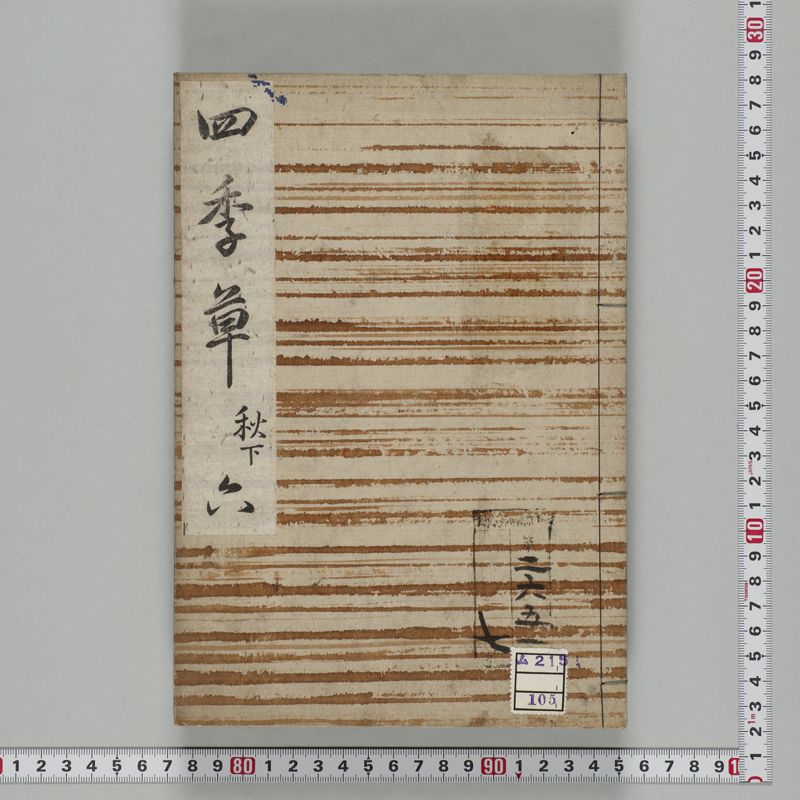 四季草
秋下
六
二六五一
七
ム215
105
0 1 2 3 4 5 6 7 8 9 80 1 2 3 4 5 6 7 8 9 90 1 2 3 4 5 6 7 8 9
1 30 9 8 7 6 5 4 3 2 1 20 9 8 7 6 5 4 3 2 1 10 9 8 7 6 5 4 3 2 1
JAPAN
1m